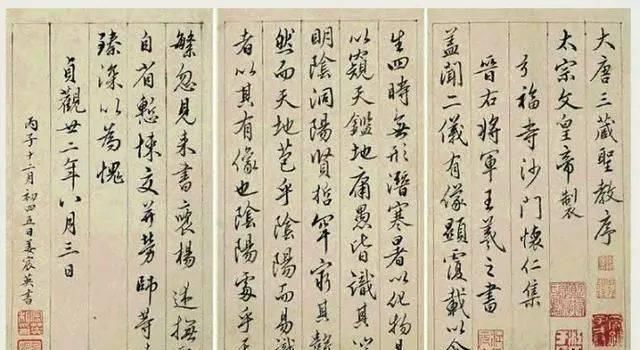 大唐三藏聖教序
太宗文皇帝製
弘福寺沙門懷仁集
晉右將軍王羲之書
蓋聞二儀有像顯覆載以含
生四時無形潛寒暑以化物
以窺天鑑地庸愚皆識其
明陰洞陽賢哲罕窮其數
然而天地苞乎陰陽而易識
者以其有像也陰陽處乎
繁忽見來書褒揚述撫
自省慙悚交并勞師等
臻深以為愧
貞觀廿二年八月三日
丙子十二月初四五日姜宸英書